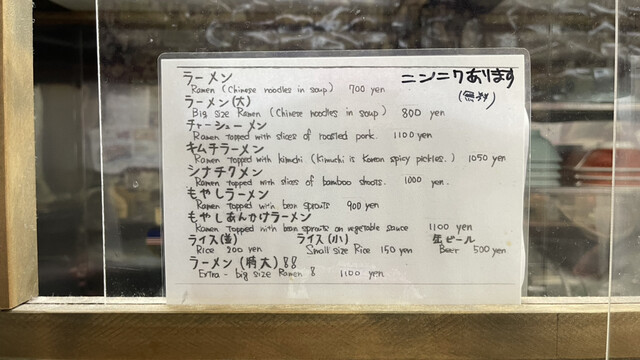 ラーメン
Ramen (Chinese noodles in soup) 700 yen
ニンニクあります
(無料)
ラーメン(大)
Big size Ramen (Chinese noodles in soup) 800 yen
チャーシューメン
Ramen topped with slices of roasted pork. 1100 yen
キムチラーメン
Ramen topped with kimchi (Kimuchi is Korean spicy pickles.) 1050 yen
シナチクメン
Ramen topped with slices of bamboo shoots. 1000 yen.
もやしラーメン
Ramen topped with bean sprouts 900 yen
もやしあんかけラーメン
Ramen topped with bean sprouts on vegetable sauce 1100 yen
ライス ライス(小) 缶ビール
Rice 200 yen Small size Rice 150 yen Beer 500 yen
ラーメン(特大)
Extra - big size Ramen 1100 yen